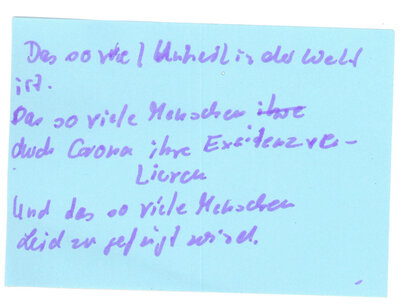 Das so viel Unheil in der Welt
ist.
Das so viele Menschen ihre
durch Corona ihre Existenz ver-
lieren
Und das so viele Menschen
Leid zu gefügt wird.